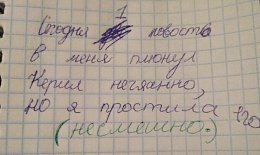 1
Сегодня новость
В меня плюнул
Кирил нечаянно,
НО я простила его
(несмешно.)